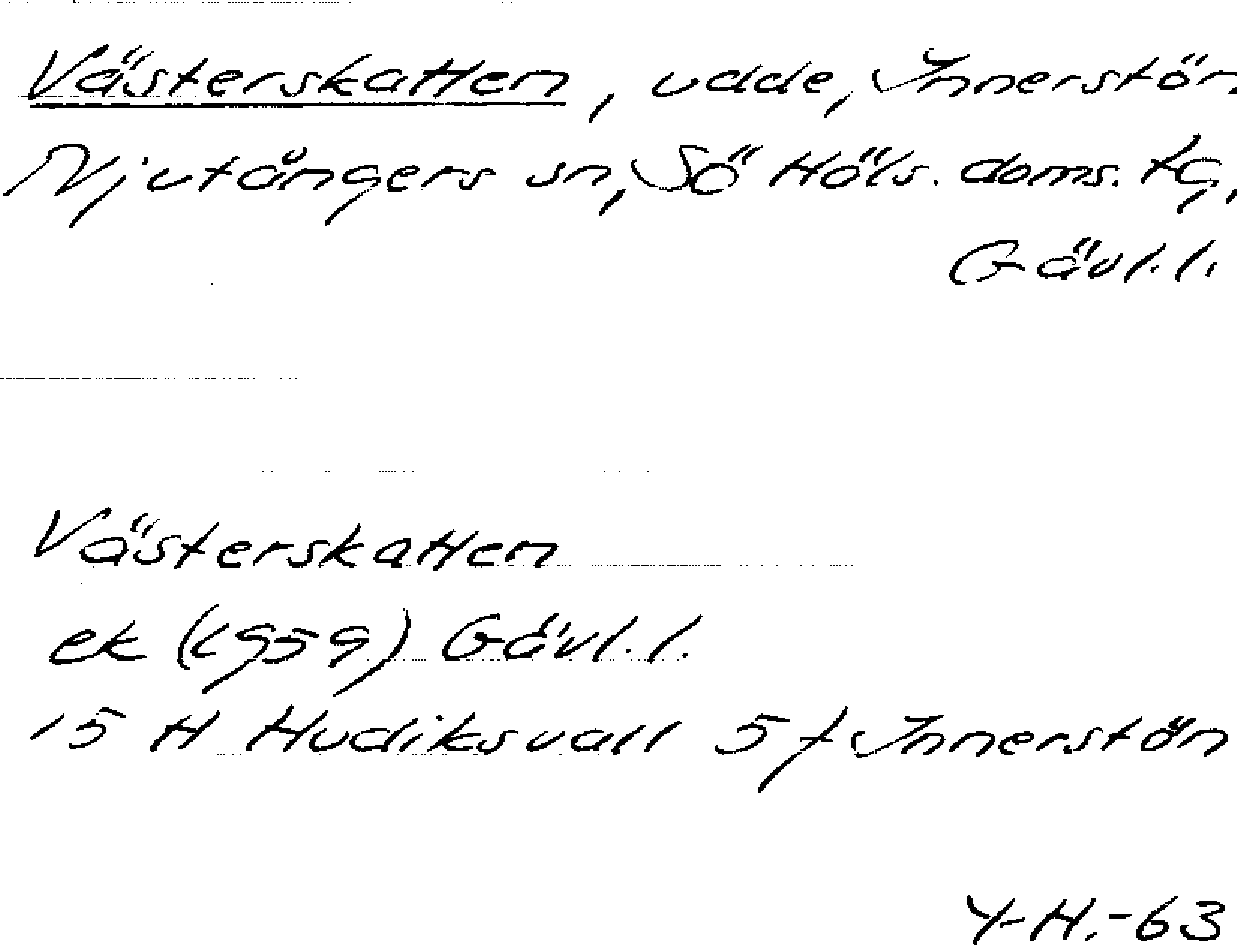 Västerskatten, udde, Innerstön
Njutångers sn, Sö Häls. doms. tg,
Gävl. l.
Västerskatten
ek (1959) Gävl. l.
15 H Hudiksvall 5 f Innerstön
Y-H.-63